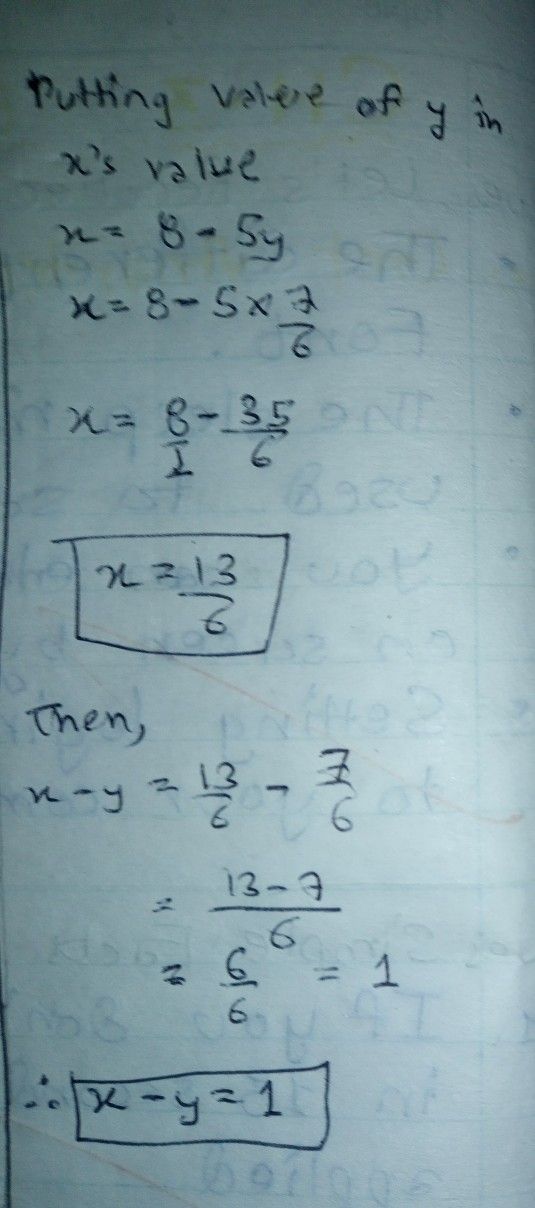 Putting value of y in
x's value
x = 8 - 5y
x = 8 - 5 × 7/6
x = 8/1 - 35/6
x = 13/6
Then,
x - y = 13/6 - 7/6
= 13 - 7/6
= 6/6 = 1
∴ x - y = 1